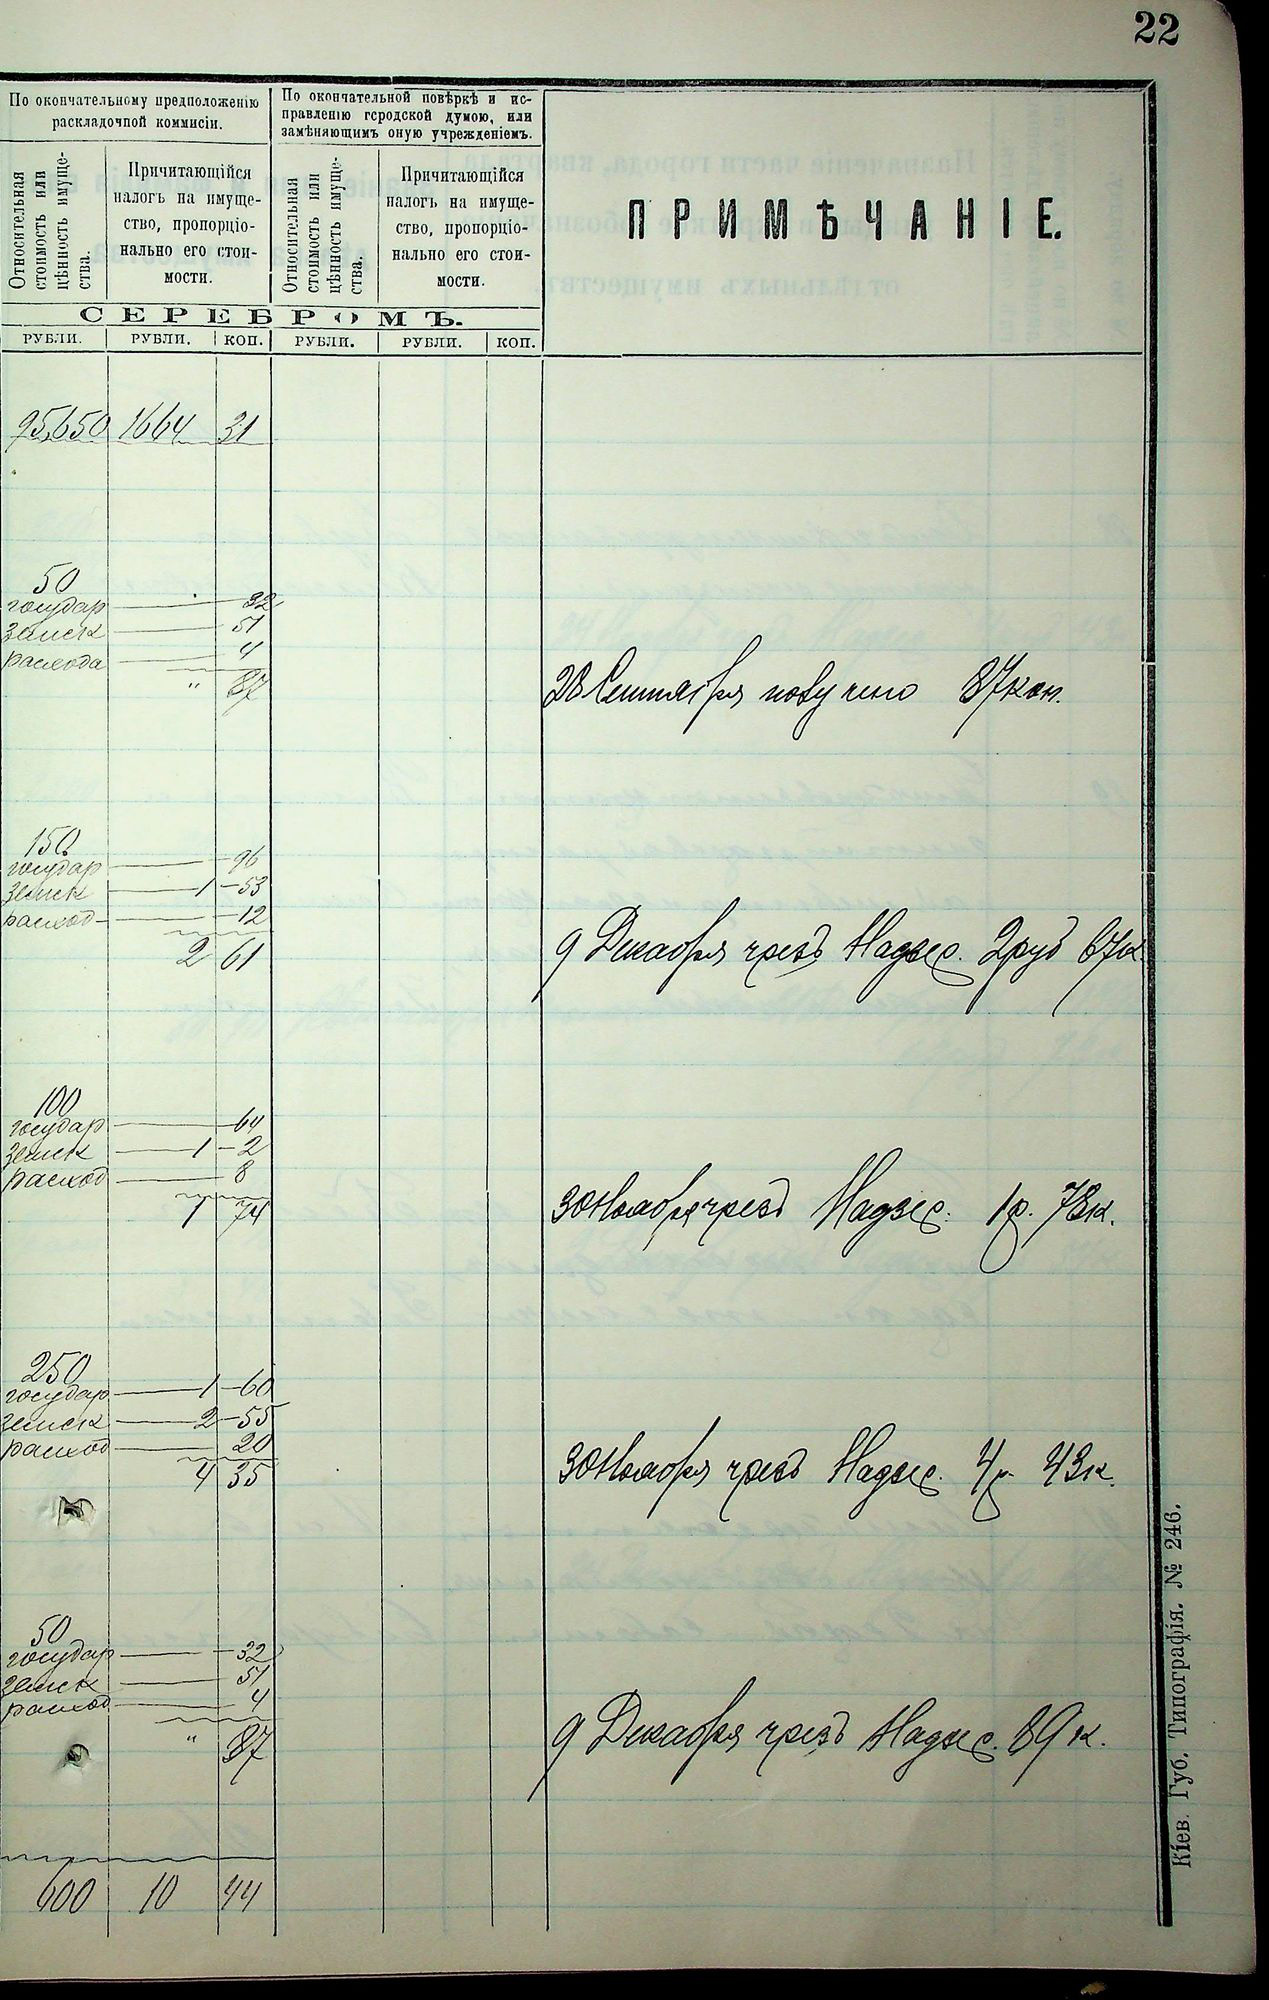 22
По окончательному предположенію
раскладочной коммисіи.
По окончательной повѣркѣ и ис-
правленію городской думою, или
замѣняющимъ оную учрежденіемъ.
Относительная
стоимость или
цѣнность имуще-
ства.
Причитающійся
налогъ на имуще-
ство, пропорціо-
нально его стои-
мости.
Относительная
стоимость или
цѣнность имуще-
ства.
Причитающійся
налогъ на имуще-
ство, пропорціо-
нально его стои-
мости.
ПРИМѢЧАНІЕ.
СЕРЕБРОМЪ.
РУБЛИ. РУБЛИ. КОП. РУБЛИ. РУБЛИ. КОП.
95,650 1664 31
50
государ 32
земск 51
расхода 4
" 87
28 Сентября получено 87 коп.
150
государ 96
земск 1 53
расход 12
2 61
9 Декабря чрезъ Надзс. 2 руб 67 к
100
государ 64
земск 1 2
расход 8
1 74
30 Ноября чрезъ Надзс. 1 р. 78 к.
250
государ 1 60
земск 2 55
расход 20
4 35
30 Ноября чрезъ Надзс. 4 р 43 к.
50
государ 32
земск 51
расход 4
" 87
9 Декабря чрезъ Надзс. 89 к.
600 10 44
Кіев. Губ. Типографія. № 246.